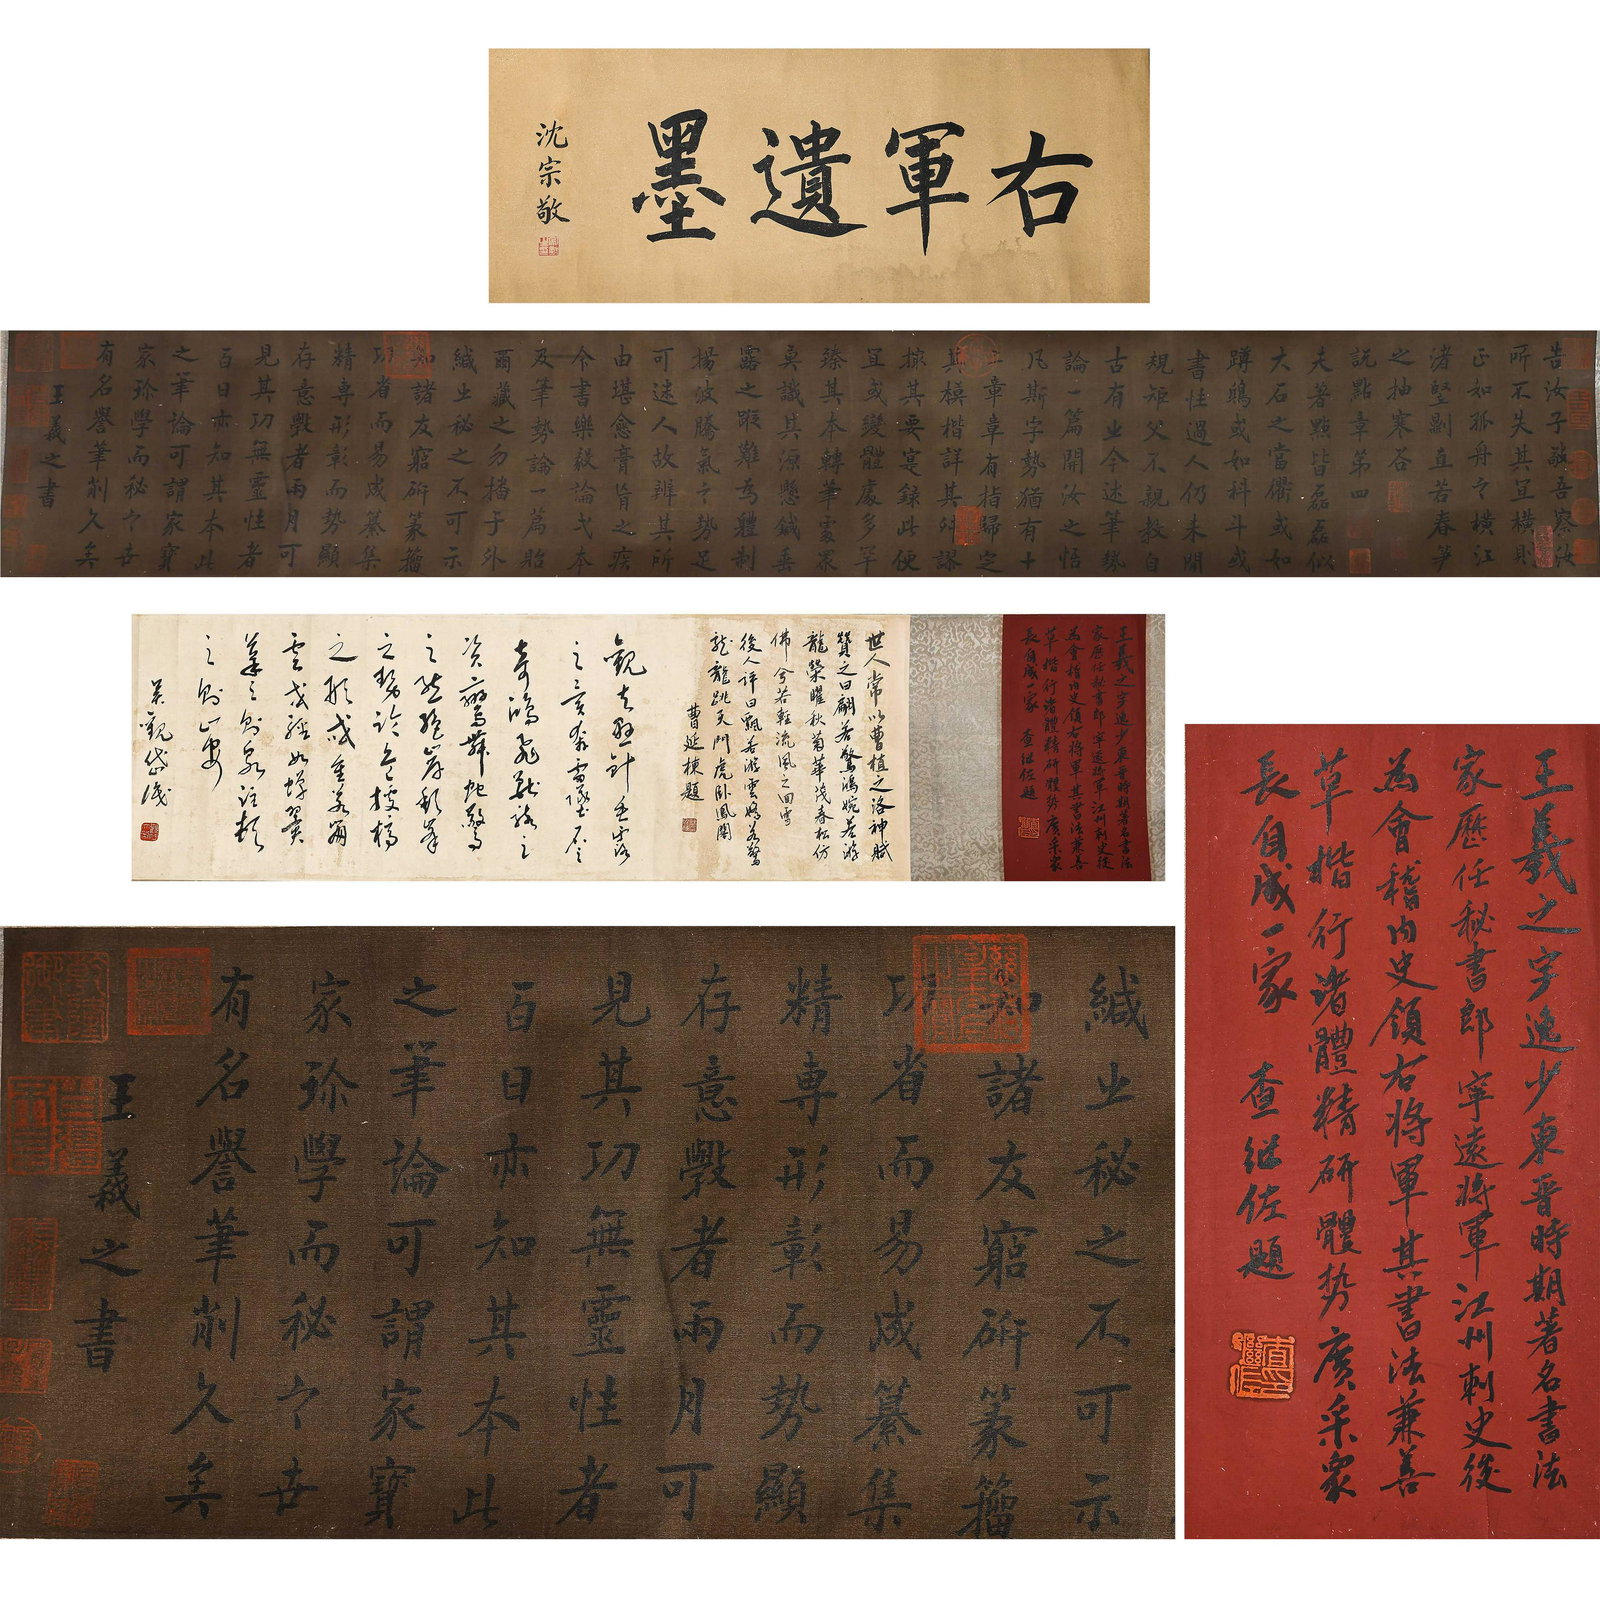 右軍遺墨
沈宗敬
告汝子敬吾察汝
所不失其宜橫則
正如孤舟之橫江
渚豎則直若春笋
之抽寒谷
說點章第四
夫著點皆磊磊似
大石之當衢或如
蹲鴟或如科斗或
書性過人仍未閑
規矩父不親教自
古有之今述筆勢
論一篇開汝之悟
凡斯字勢猶有十
二章章有指歸定
其模楷詳其舛謬
撮其要實錄此便
宜或變體處多罕
臻其本轉筆處眾
莫識其源懸針垂
露之蹤難為體制
揚波騰氣之勢足
可迷人故辨其所
由堪愈膏肓之疾
今書樂毅論弋本
及筆勢論一篇貽
爾藏之勿播于外
緘之秘之不可示
知諸友窮研篆籀
功省而易成纂集
精專形彰而勢顯
存意斅者兩月可
見其功無靈性者
百日亦知其本此
之筆論可謂家寶
家珍學而秘之世
有名譽筆削久矣
王羲之書
王羲之字逸少東晉時期著名書法
家歷任秘書郎寧遠將軍江州刺史後
為會稽內史領右將軍其書法兼善
草楷行諸體精研體势廣采眾
長自成一家 查继佐題
世人常以曹植之洛神賦
贊之曰翩若驚鴻婉若游
龍榮曜秋菊華茂春松仿
佛兮若輕流風之回雪
後人評曰飄若游雲婉若驚
龍龍跳天門虎卧鳳閣
曹延棟題
觀夫懸針垂露
之異奔雷墜石
之奇鴻飛獸駭之
資鸞舞蛇驚
之態絕岸頹峯
之勢臨危據槁
之形或重若崩
雲或輕如蟬翼
導之則泉注頓
之則山安
吳觀岱識
緘之秘之不可示
知諸友窮研篆籀
功省而易成纂集
精專形彰而勢顯
存意斅者兩月可
見其功無靈性者
百日亦知其本此
之筆論可謂家寶
家珍學而秘之世
有名譽筆削久矣
王羲之書
王羲之字逸少東晉時期著名書法
家歷任秘書郎寧遠將軍江州刺史後
為會稽內史領右將軍其書法兼善
草楷行諸體精研體势廣采眾
長自成一家 查继佐題